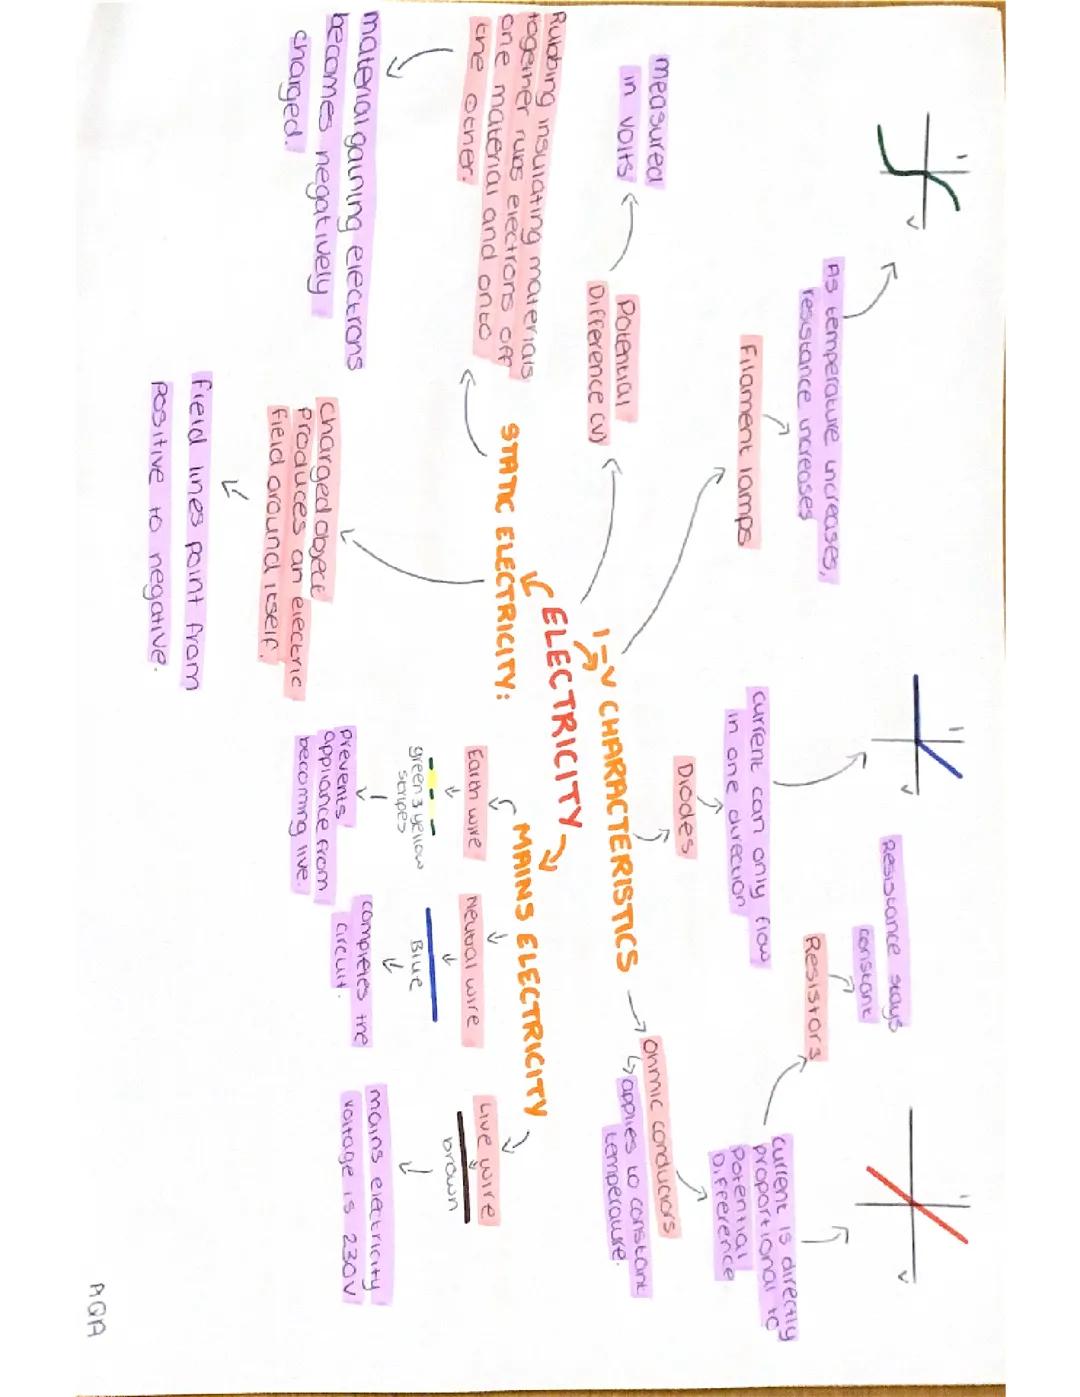 I
V
As temperature increases,
resistance increases
Filament lamps
I
V
current can only flow
in one direction
Diodes
Resistance stays
constant
Resistors
I
V
current is directly
proportional to
Potential
Difference
ohmic conductors
applies to constant
temperature.
measured
in volts
Potential
Difference (V)
I-V CHARACTERISTICS
ELECTRICITY
STATIC ELECTRICITY:
Rubbing insulating materials
together rubs electrons off
one material and onto
the other.
material gaining electrons
becomes negatively
charged.
charged object
produces an electric
field around itself.
field lines point from
positive to negative.
MAINS ELECTRICITY
Earth wire
green & yellow
stripes
prevents
appliance from
becoming live.
Neutral wire
Blue
completes the
circuit.
Live wire
brown
mains electricity
voltage is 230V
AQA